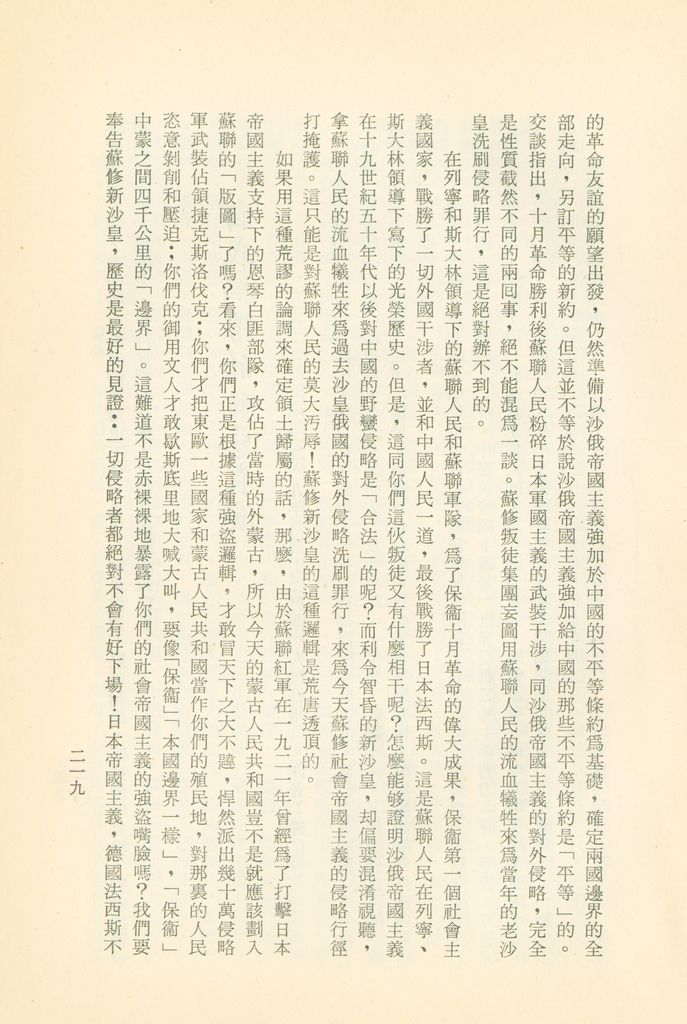 的革命友誼的願望出發，仍然準備以沙俄帝國主義強加於中國的不平等條約爲基礎，確定兩國邊界的全
部走向，另訂平等的新約。但這並不等於說沙俄帝國主義強加給中國的那些不平等條約是「平等」的。
交談指出，十月革命勝利後蘇聯人民粉碎日本軍國主義的武裝干涉，同沙俄帝國主義的對外侵略，完全
是性質截然不同的兩回事，絕不能混爲一談。蘇修叛徒集團妄圖用蘇聯人民的流血犧牲來爲當年的老沙
皇洗刷侵略罪行，這是絕對辦不到的。
在列寧和斯大林領導下的蘇聯人民和蘇聯軍隊，爲了保衞十月革命的偉大成果，保衞第一個社會主
義國家，戰勝了一切外國干涉者，並和中國人民一道，最後戰勝了日本法西斯。這是蘇聯人民在列寧、
斯大林領導下寫下的光榮歷史。但是，這同你們這伙叛徒又有什麼相干呢？怎麼能够證明沙俄帝國主義
在十九世紀五十年代以後對中國的野蠻侵略是「合法」的呢？而利令智昏的新沙皇，却偏要混淆視聽，
拿蘇聯人民的流血犧牲來爲過去沙皇俄國的對外侵略洗刷罪行，來爲今天蘇修社會帝國主義的侵略行徑
打掩護。這只能是對蘇聯人民的莫大汚辱！蘇修新沙皇的這種邏輯是荒唐透頂的。
如果用這種荒謬的論調來確定領土歸屬的話，那麼，由於蘇聯紅軍在一九二一年曾經爲了打擊日本
帝國主義支持下的恩琴白匪部隊，攻佔了當時的外蒙古，所以今天的蒙古人民共和國豈不是就應該劃入
蘇聯的「版圖」了嗎？看來，你們正是根據這種強盜邏輯，才敢冒天下之大不韙，悍然派出幾十萬侵略
軍武裝佔領捷克斯洛伐克；你們才把東歐一些國家和蒙古人民共和國當作你們的殖民地，對那裏的人民
恣意剝削和壓迫；你們的御用文人才敢歇斯底里地大喊大叫，要像「保衞」「本國邊界一樣」，「保衞」
中蒙之間四千公里的「邊界」。這難道不是赤裸裸地暴露了你們的社會帝國主義的強盜嘴臉嗎？我們要
奉告蘇修新沙皇，歷史是最好的見證：一切侵略者都絕對不會有好下場！日本帝國主義，德國法西斯不
二一九